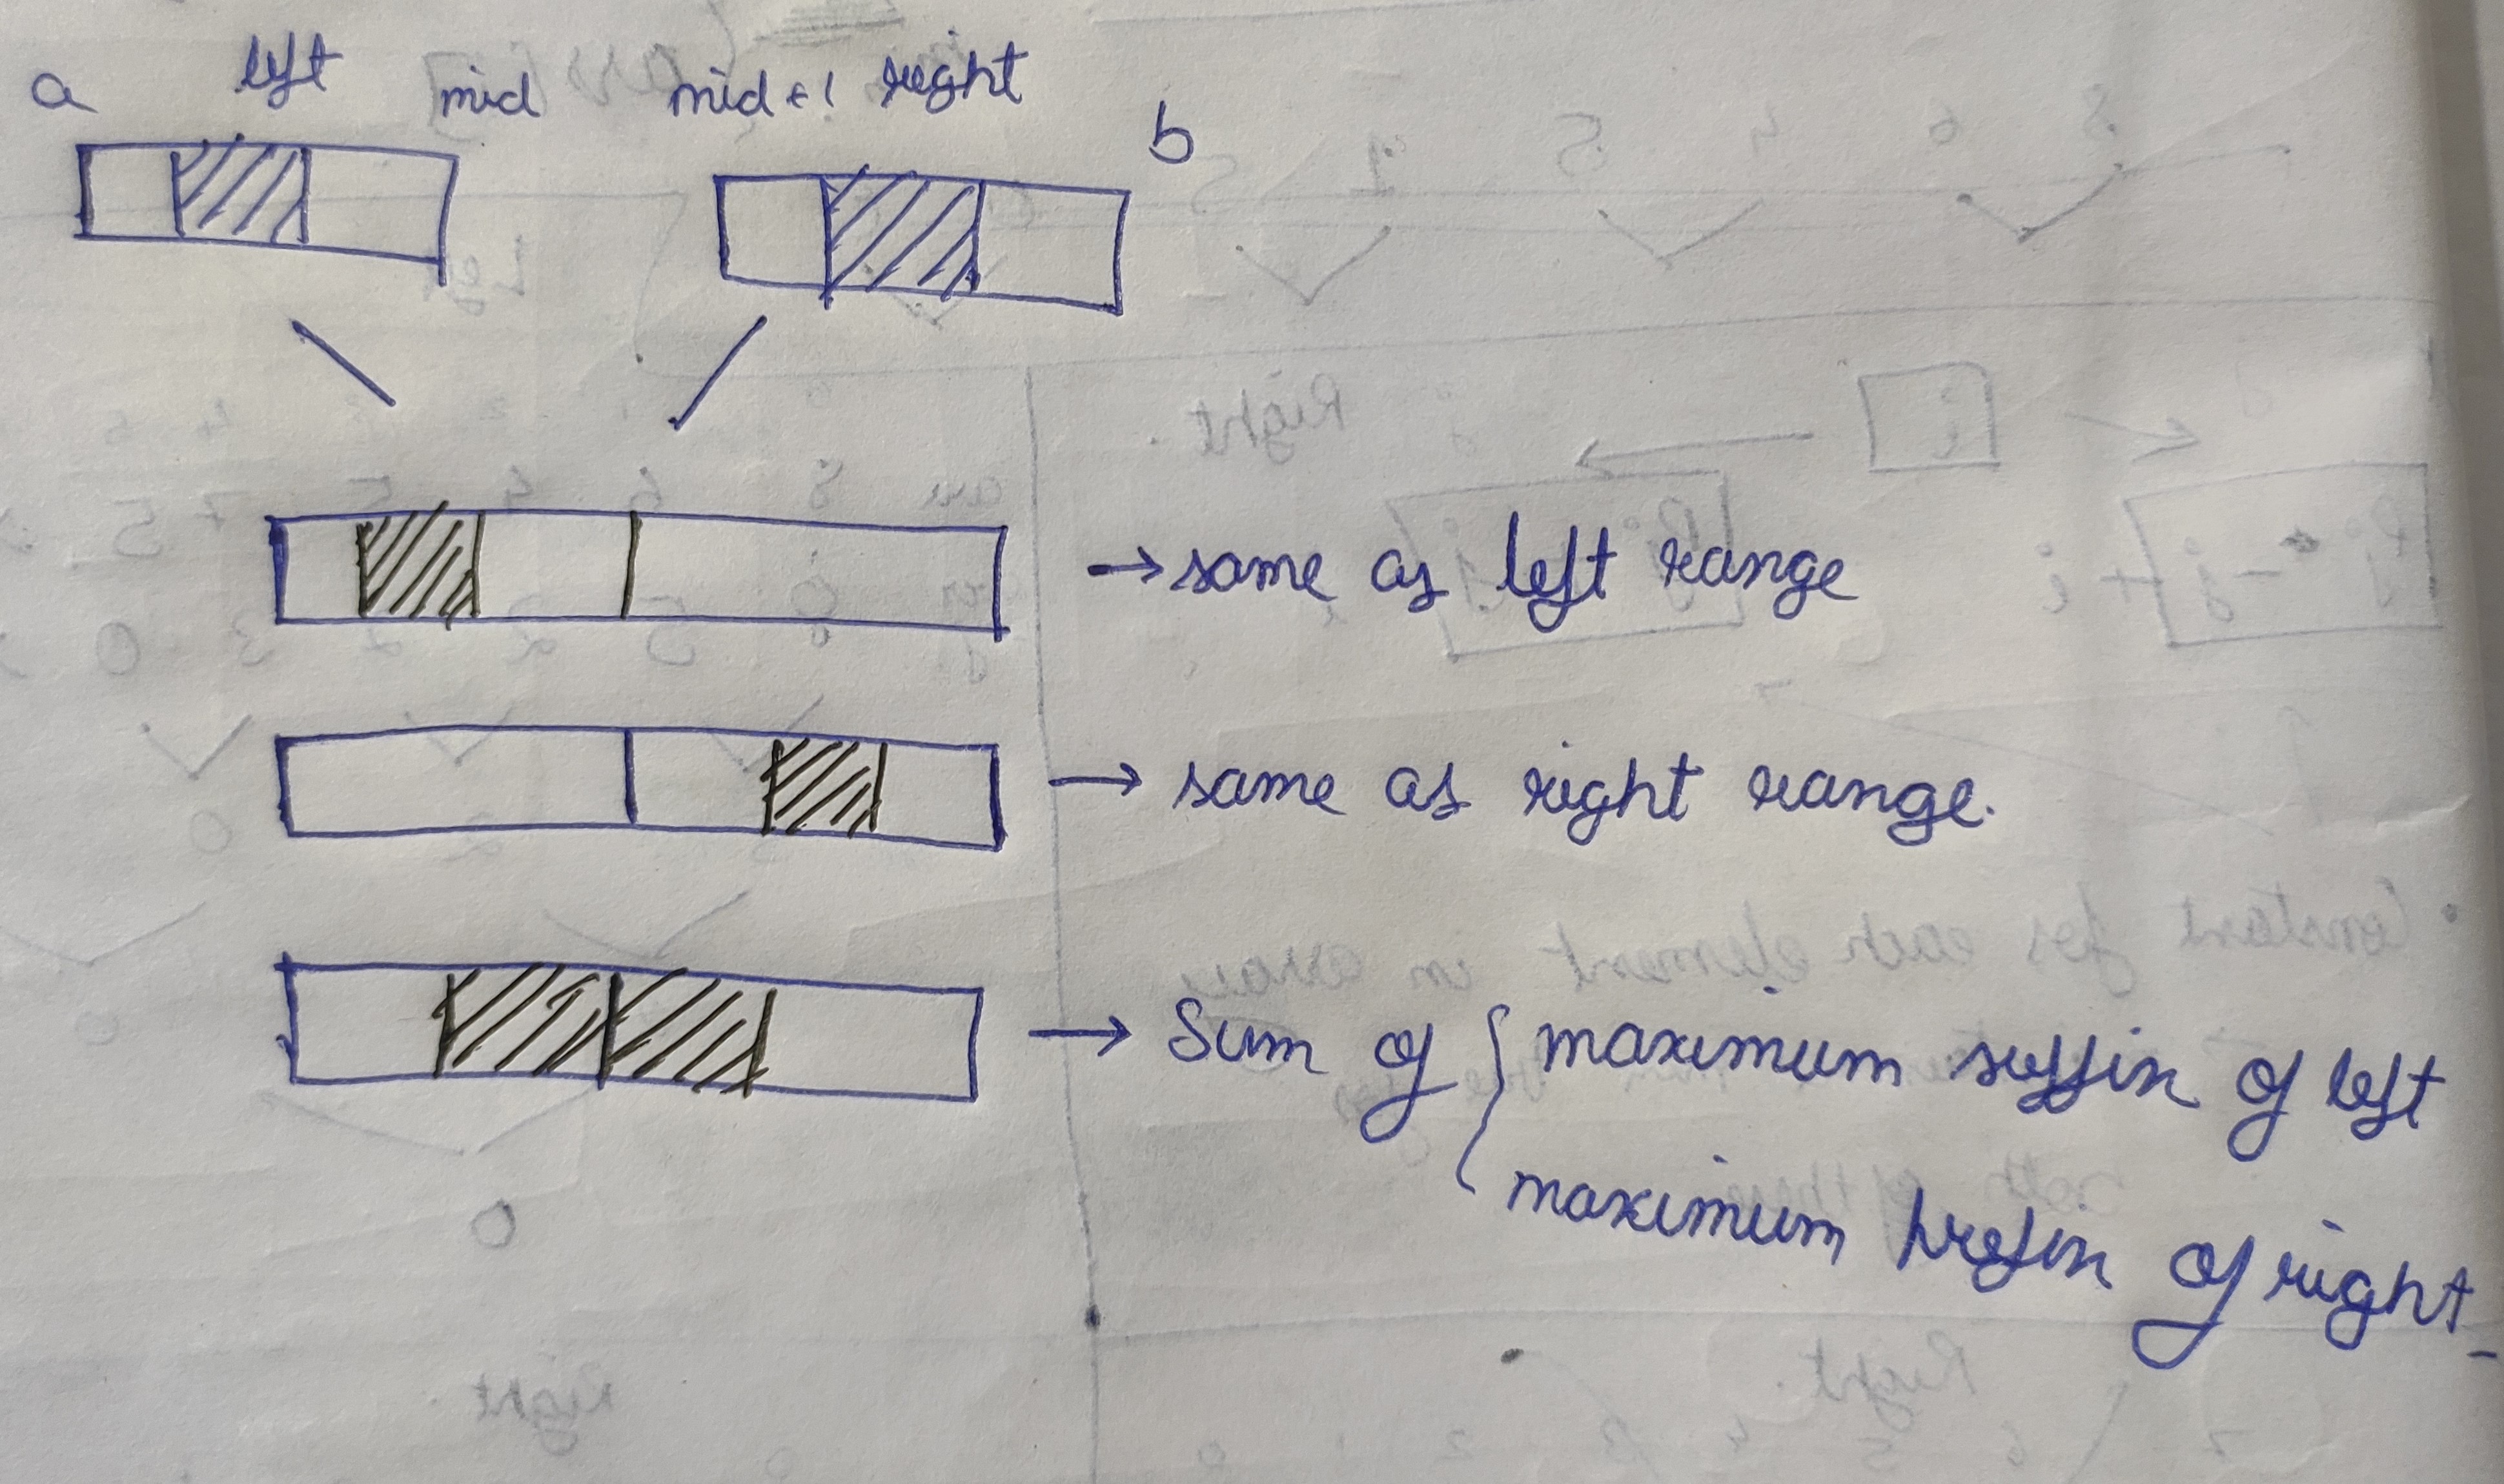 a left mid mid+1 right b
→ same as left range
→ same as right range.
→ Sum of { maximum suffix of left
maximum prefix of right